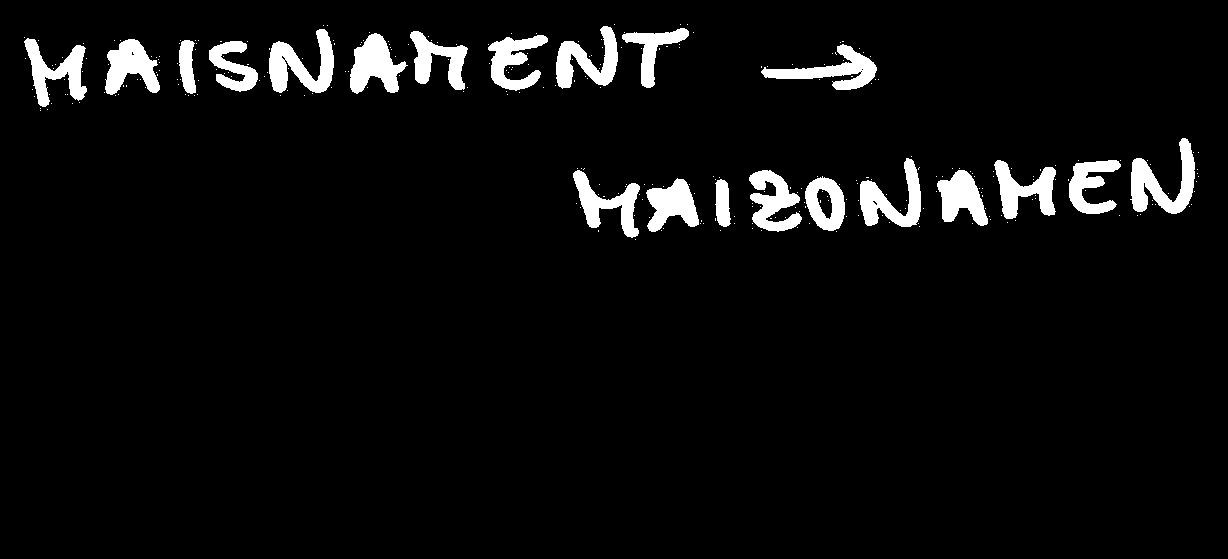 MAISNAMENT →
MAIZONAMEN